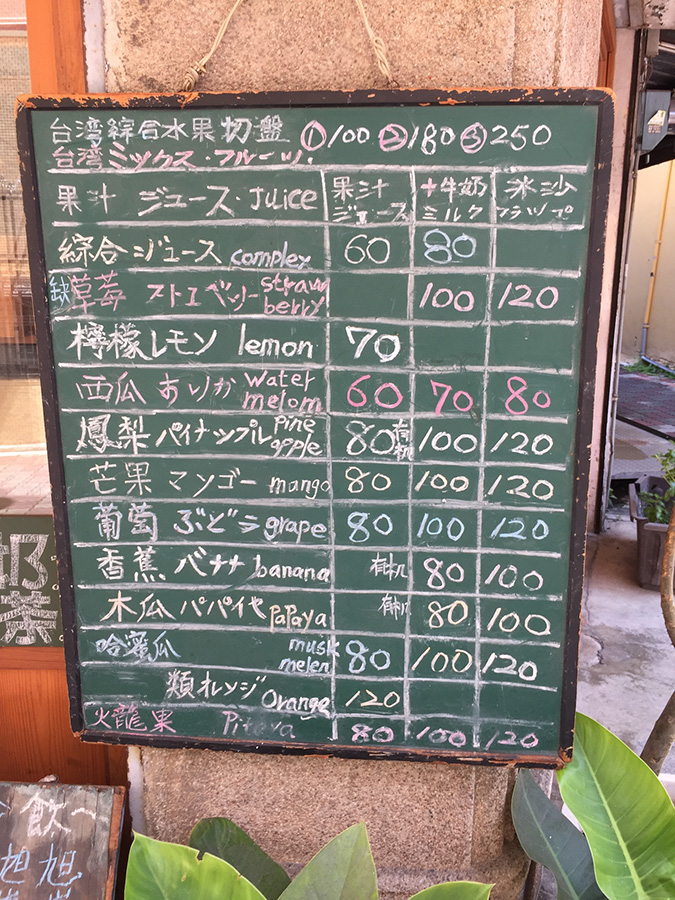 台湾綜合水果切盤 ①100 ②180 ③250
台湾ミックス・フルーツ.
果汁 ジュース・Juice 果汁 ジュース +牛奶 ミルク 氷沙 フラップ
綜合ジュース complex 60 80
缺 草莓 ストエベリー straw berry 100 120
檸檬レモン lemon 70
西瓜 すいか water melom 60 70 80
鳳梨 パイナップル pine apple 80 有机 100 120
芒果 マンゴー mango 80 100 120
葡萄 ぶどう grape 80 100 120
香蕉 バナナ banana 有机 80 100
木瓜 パパイヤ PaPaya 有机 80 100
哈蜜瓜 musk melen 80 100 120
類オレンジ Orange 120
火龍果 Piteya 80 100 120
奶
茶
飲
旭 旭